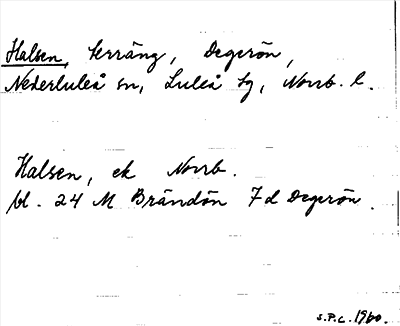 Halsen, terräng, Degerön,
Nederluleå sn, Luleå tg, Norrb. l.
Halsen, ek Norrb.
bl. 24 M Brändön 7 d Degerön.
S.P.L. 1960.